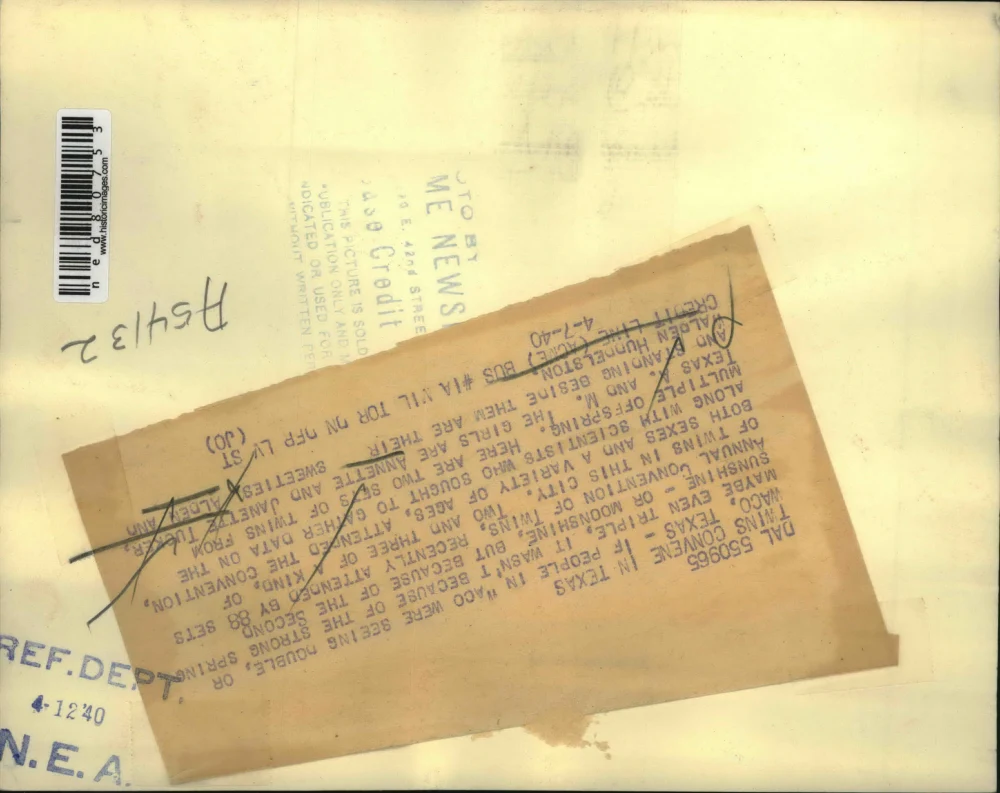 ned80753
www.historicimages.com
A54132
OTO BY
ME NEWS
E. 42nd STREE
Credit
THIS PICTURE IS SOLD
UBLICATION ONLY AND
NDICATED OR USED FOR
WITHOUT WRITTEN PE
DAL 550965
TWINS CONVENE IN TEXAS
WACO, TEXAS - IF PEOPLE IN WACO WERE SEEING DOUBLE, OR
MAYBE EVEN TRIPLE, IT WASN'T BECAUSE OF THE STRONG SPRING
SUNSHINE - OR MOONSHINE, BUT BECAUSE OF THE SECOND
ANNUAL CONVENTION OF TWINS, RECENTLY ATTENDED BY 88 SETS
OF TWINS IN THIS CITY. TWO AND THREE OF A KIND, OF
BOTH SEXES AND A VARIETY OF AGES, ATTENDED THE CONVENTION,
ALONG WITH SCIENTISTS WHO SOUGHT TO GATHER DATA ON THE
MULTIPLE OFFSPRING. HERE ARE TWO SETS OF TWINS FROM
TEXAS A. AND M. THE GIRLS ARE ANNETTE AND JANETTE TUCKER,
AND STANDING BESIDE THEM ARE THEIR SWEETIES, ALDEN AND
ALDEN HUDDELSTON.
CREDIT LINE (ACME) BUS #1A MIL TOR DN OFP LV ST
4-7-40 (JO)
REF. DEPT.
4-12 40
N.E.A.